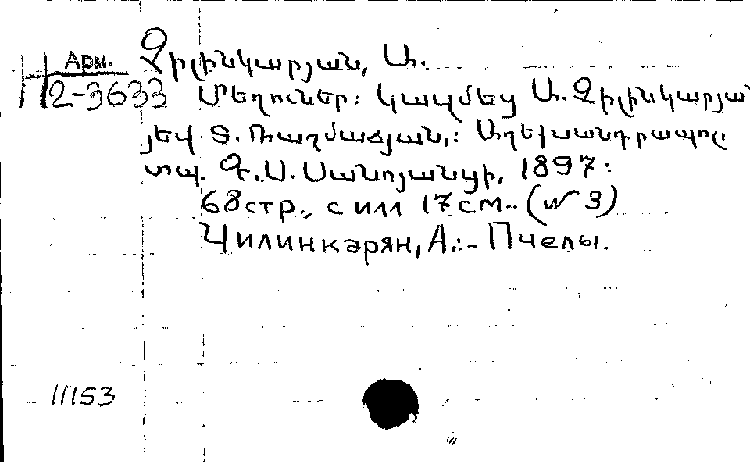 Арм.
Չիլինկարյան, Ա.
2-3633 Մեղուներ: Կազմեց Ա. Չիլինկարյան
յեվ Տ. Ռազմաճյան,: Աղեխսանդրապոլ
տպ. Գ. Ս. Սանոյանցի, 1897:
68 стр., с илл 17см.. (№ 3)
Чилинкарян, А.:- Пчелы.
11153